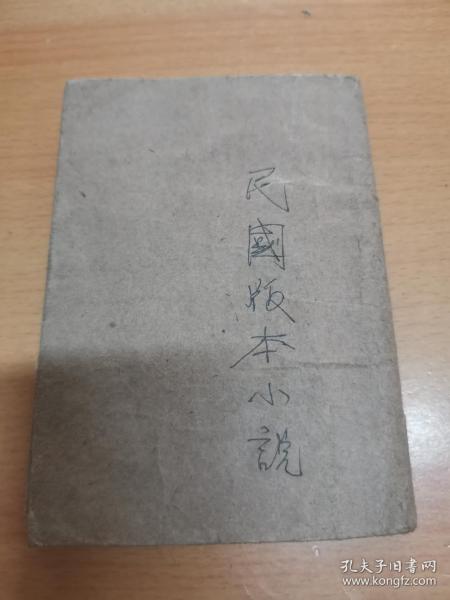 民國版本小說
孔夫子旧书网
www.kongfz.com